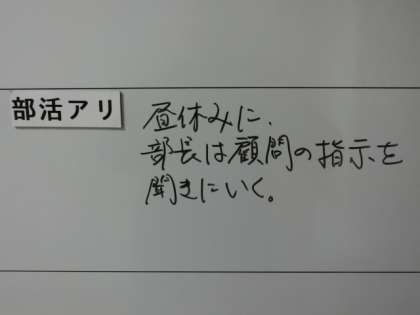 部活アリ
昼休みに、
部長は顧問の指示を
聞きにいく。